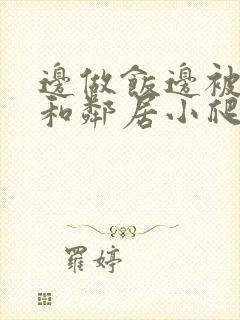 邊做飯邊被
和鄰居小爬
羅婷